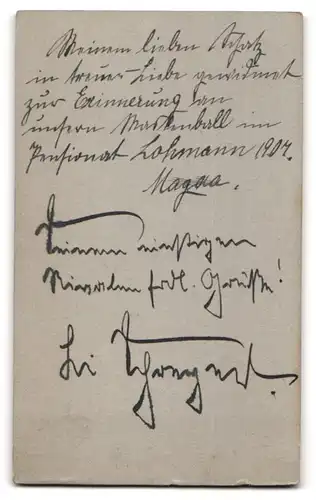 Meinem lieben Schatz
in treuer Liebe gewidmet
zur Erinnerung an
unsern Maskenball im
Pensionat Lohmann 1907.
Magda.
Meinem einstigen
Rivalen frdl. Grüße!